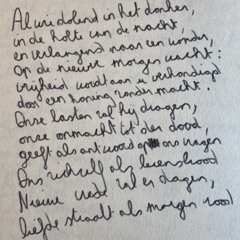 Al wie dolend in het donker,
in de holte van de nacht
en verlangend naar een wonder,
op de nieuwe morgen wacht:
vrijheid wordt aan u verkondigd
door een koning zonder macht.
Onze lasten zal hij dragen,
onze onmacht tot der dood,
geeft als antwoord op ons vragen
Ons zichzelf als levensbrood
Nieuwe vrede zal er dagen,
liefde straalt als morgenrood